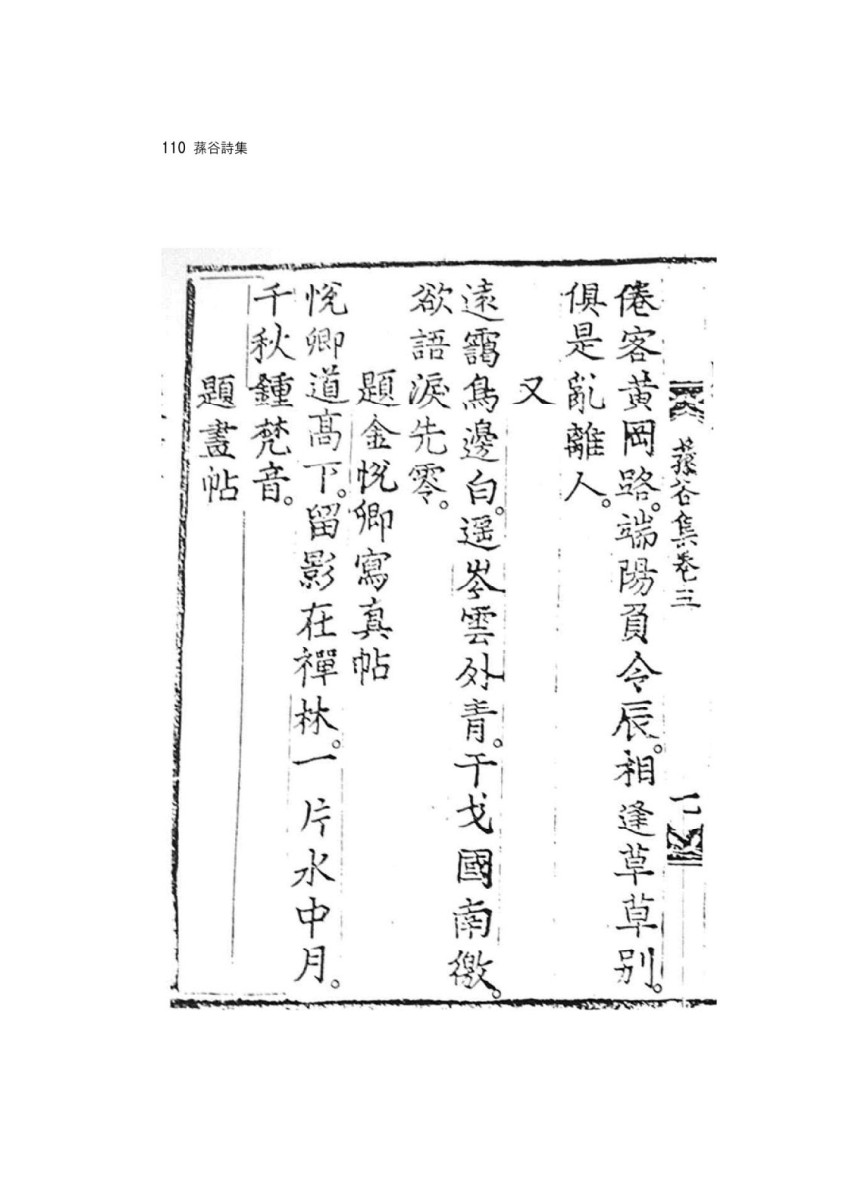 110 蓀谷詩集
蓀谷集卷三 一
倦客黃岡路。端陽負令辰。相逢草草別。
俱是亂離人。
又
遠靄鳥邊白。遥岑雲外青。干戈國南徼。
欲語淚先零。
題金悅卿寫真帖
悅卿道高下。留影在禪林。一片水中月。
千秋鍾梵音。
題畫帖